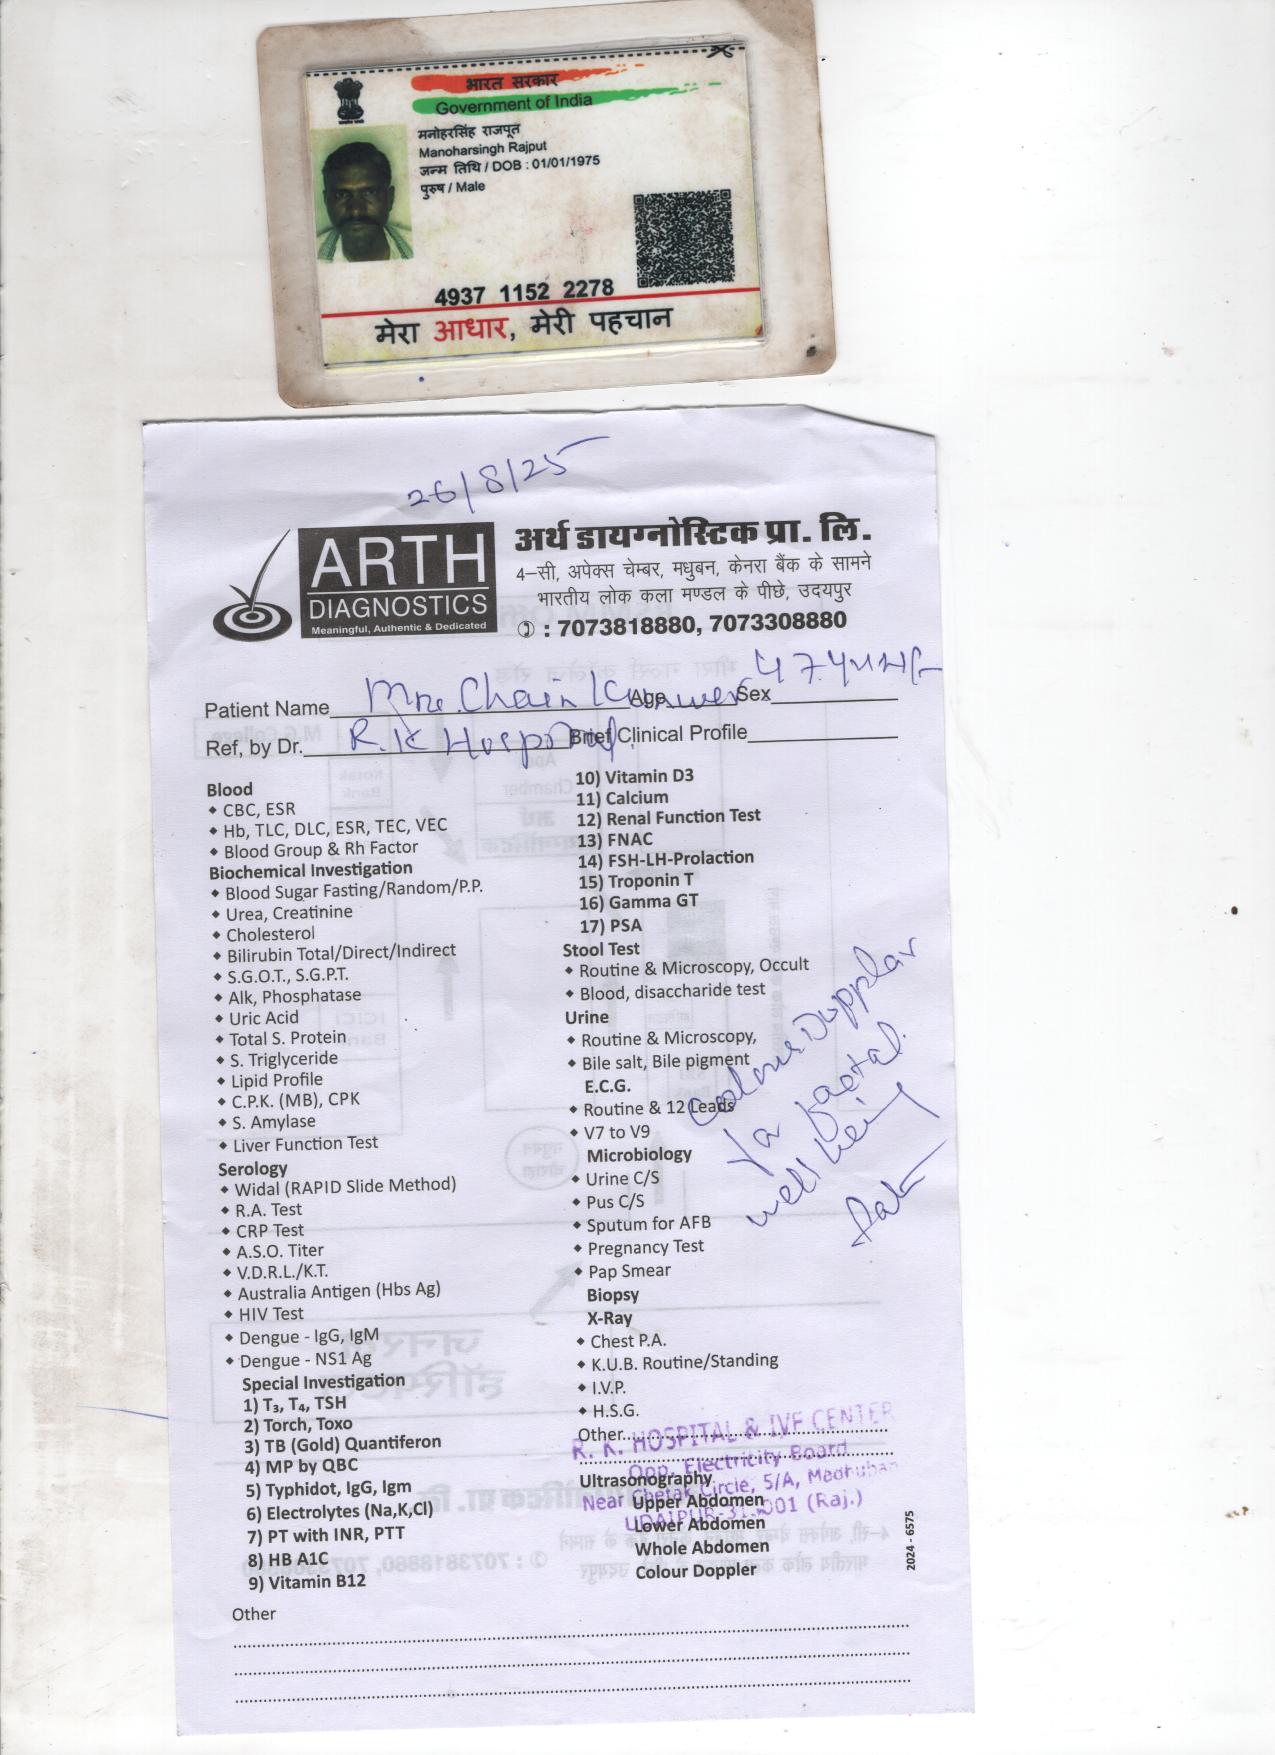 भारत सरकार
Government of India
मनोहरसिंह राजपूत
Manoharsingh Rajput
जन्म तिथि / DOB : 01/01/1975
पुरुष / Male
4937 1152 2278
मेरा आधार, मेरी पहचान
26/8/25
ARTH
DIAGNOSTICS
Meaningful, Authentic & Dedicated
अर्थ डायग्नोस्टिक प्रा. लि.
4–सी, अपेक्स चेम्बर, मधुबन, केनरा बैंक के सामने
भारतीय लोक कला मण्डल के पीछे, उदयपुर
: 7073818880, 7073308880
Patient Name Mrs. Chain Kunwer Age Sex 47
Ref, by Dr. R.K Hospital Brief Clinical Profile
Blood
CBC, ESR
Hb, TLC, DLC, ESR, TEC, VEC
Blood Group & Rh Factor
Biochemical Investigation
Blood Sugar Fasting/Random/P.P.
Urea, Creatinine
Cholesterol
Bilirubin Total/Direct/Indirect
S.G.O.T., S.G.P.T.
Alk, Phosphatase
Uric Acid
Total S. Protein
S. Triglyceride
Lipid Profile
C.P.K. (MB), CPK
S. Amylase
Liver Function Test
Serology
Widal (RAPID Slide Method)
R.A. Test
CRP Test
A.S.O. Titer
V.D.R.L./K.T.
Australia Antigen (Hbs Ag)
HIV Test
Dengue - IgG, IgM
Dengue - NS1 Ag
Special Investigation
1) T₃, T₄, TSH
2) Torch, Toxo
3) TB (Gold) Quantiferon
4) MP by QBC
5) Typhidot, IgG, Igm
6) Electrolytes (Na,K,Cl)
7) PT with INR, PTT
8) HB A1C
9) Vitamin B12
10) Vitamin D3
11) Calcium
12) Renal Function Test
13) FNAC
14) FSH-LH-Prolaction
15) Troponin T
16) Gamma GT
17) PSA
Stool Test
Routine & Microscopy, Occult
Blood, disaccharide test
Urine
Routine & Microscopy,
Bile salt, Bile pigment
E.C.G.
Routine & 12 Leads
V7 to V9
Microbiology
Urine C/S
Pus C/S
Sputum for AFB
Pregnancy Test
Pap Smear
Biopsy
X-Ray
Chest P.A.
K.U.B. Routine/Standing
I.V.P.
H.S.G.
Other
Ultrasonography
Upper Abdomen
Lower Abdomen
Whole Abdomen
Colour Doppler
Colour Dopplar
for faetal
well being
R. K. HOSPITAL & IVF CENTER
Opp. Electricity Board
Near Chetak Circle, 5/A, Madhuban
UDAIPUR (Raj.)
2024 - 6575
Other